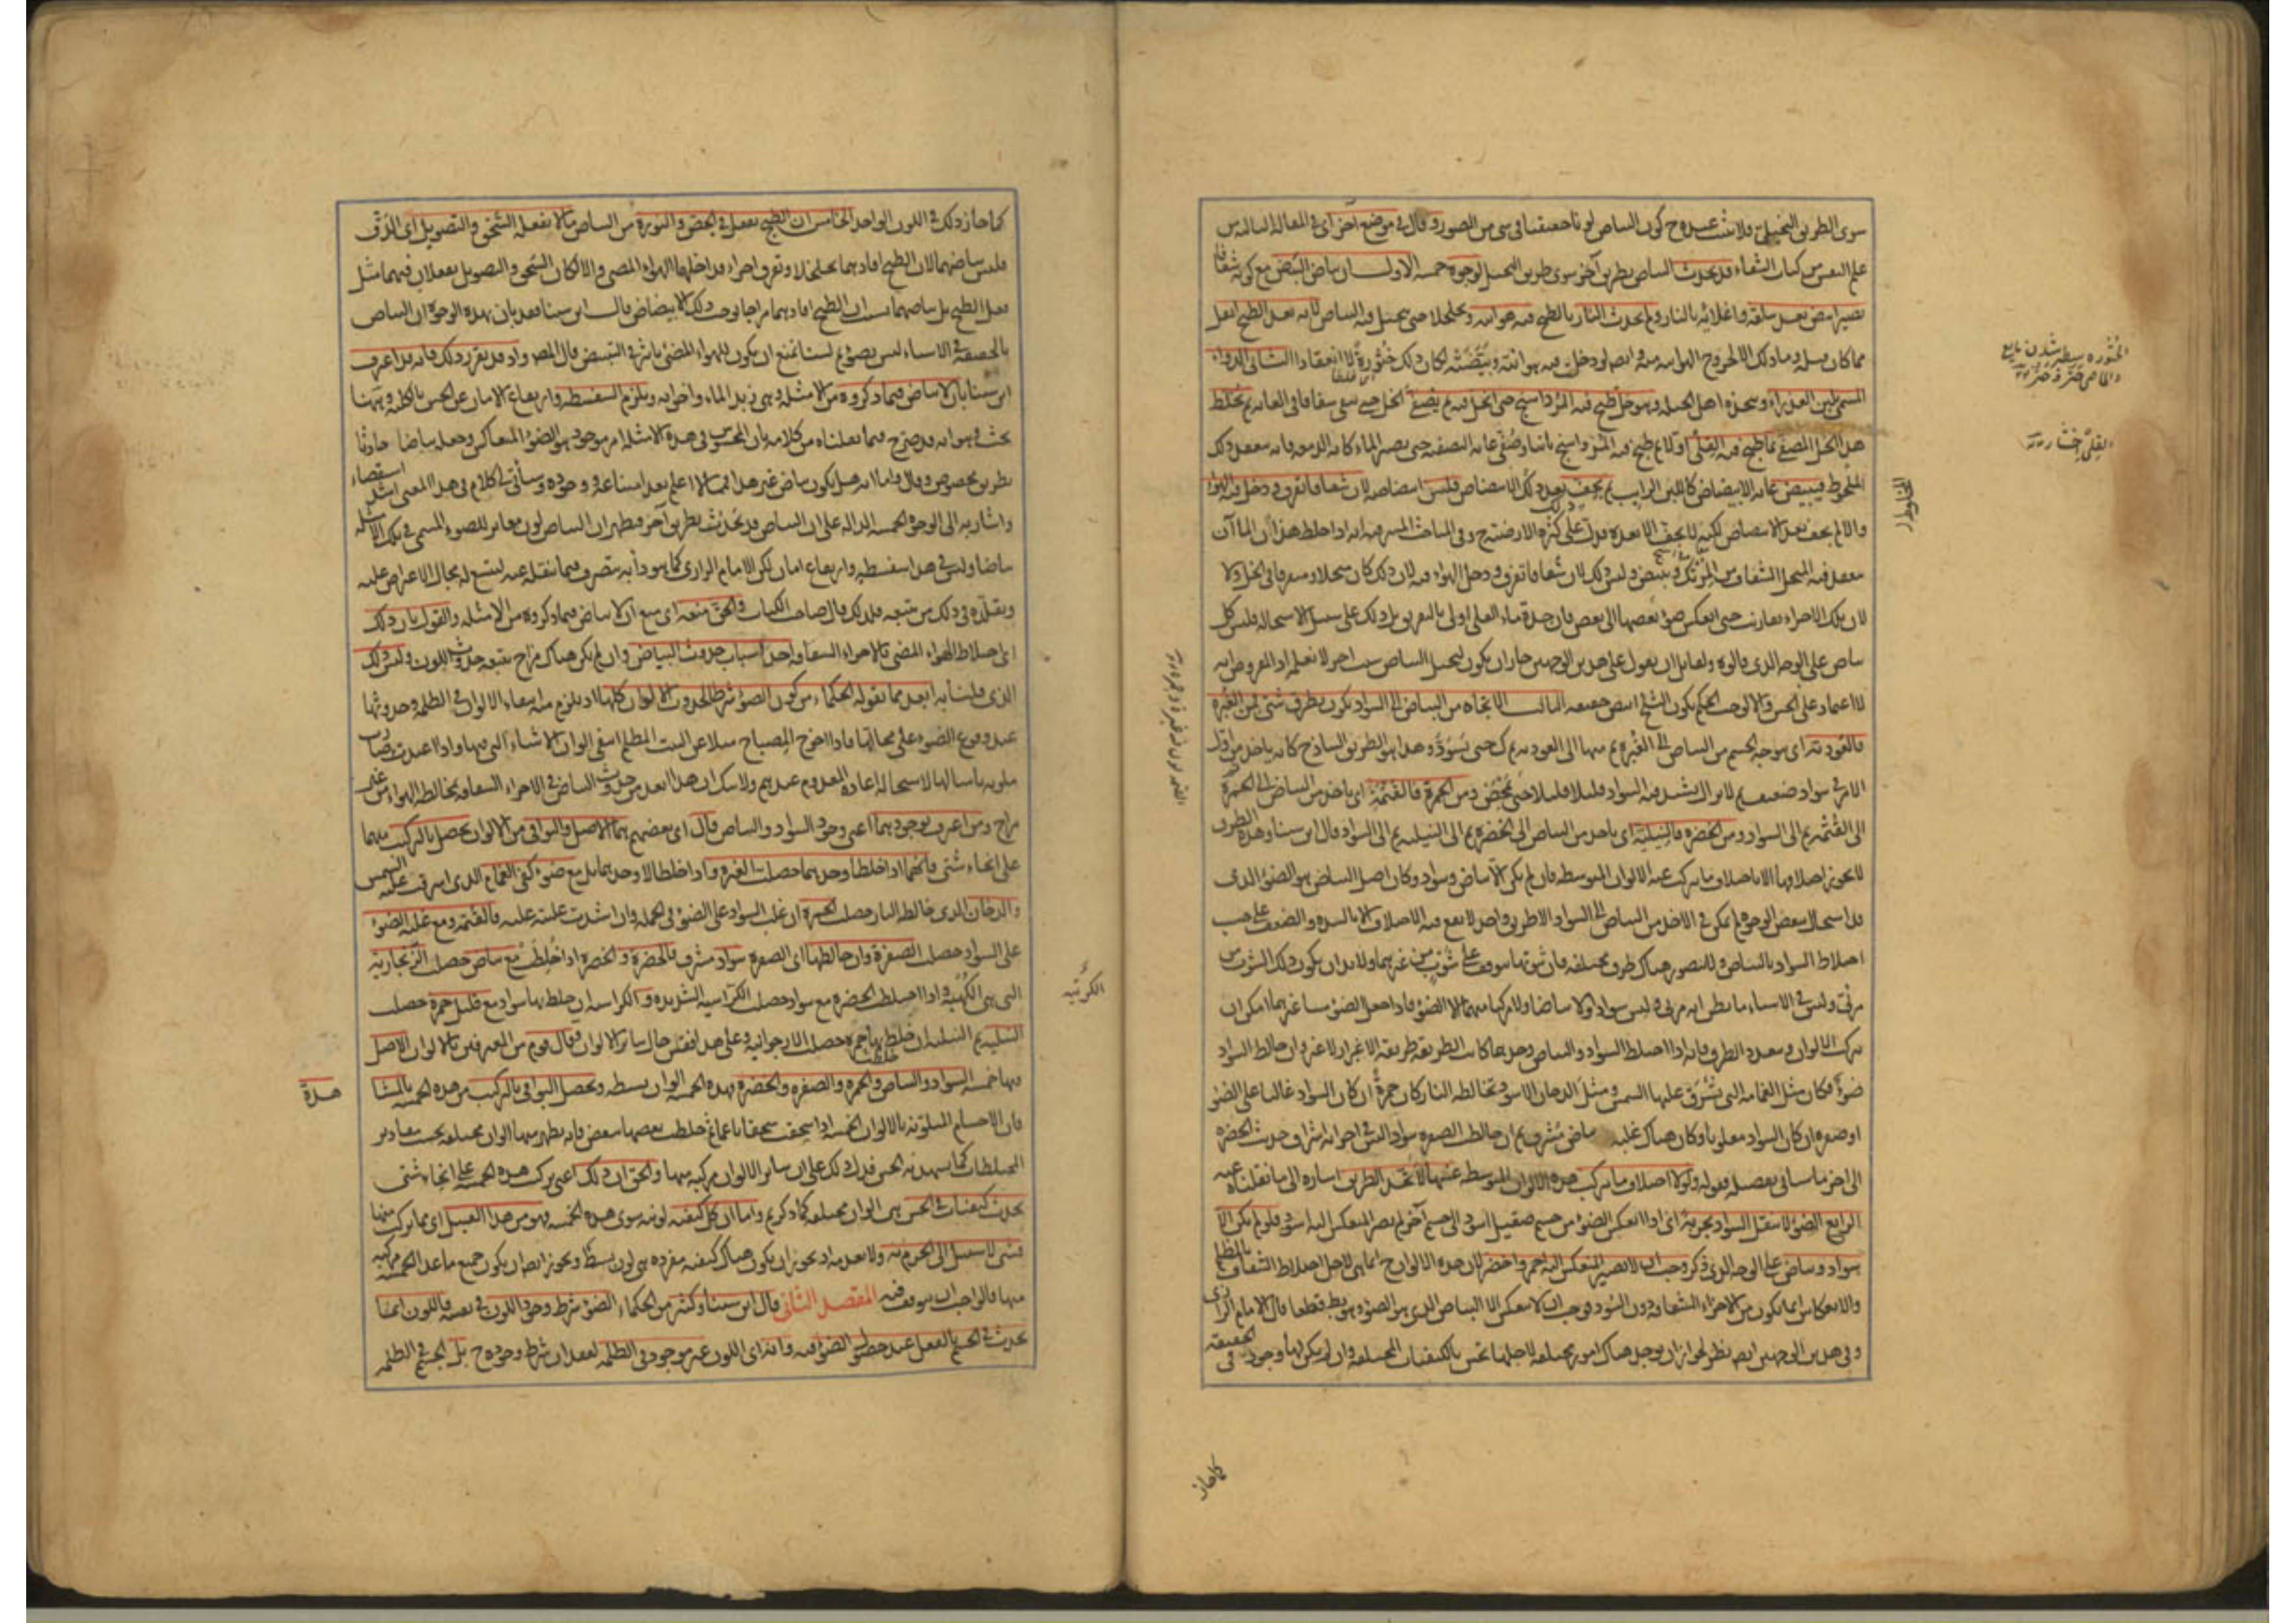 سوى الطريق التخيلى فلا يثبت عنده ح كون البياض لونا حقيقيا فى شىء من الصور وقال فى موضع آخر اى فى المقالة الثالثة من
علم النفس من كتاب الشفاء قد يحدث البياض بطريق آخر سوى طريق التخيل لوجوه خمسة الاول ان بياض البيض مع كونه شفافا
يصير ابيض بعد سلقه واغلائه بالنار ولم يحدث النار بالطبخ فيه هوائية وتخلخلا حتى يتخيل فيه البياض لانه بعد الطبخ اثقل
مما كان قبله وما ذلك الا لخروج الهوائية منه وايضا لو دخلت فيه هوائية وبيضته لكان ذلك خثورة لا انعقادا الثانى الدواء
المسمى بلبن العذراء ويتخذه اهل الحيلة وهو خل طبخ فيه المرداسنج حتى انحل فيه ثم يصفى الخل حتى يبقى شفافا فى الغاية ثم يخلط
هذا الخل المصفى بما طبخ فيه القلى اولا ثم طبخ فيه المرداسنج ثانيا وصفى غاية التصفية حتى يصير الماء كانه الدمعة فانه ينعقد ذلك
المخلوط فيبيض غاية الابيضاض كاللبن الرايب ثم يجف بعد ذلك الابيضاض فليس ابيضاضه لان شفافا تفرق ودخل فيه الهواء
والا لم يجف بعد الابيضاض لكنه لا يجف الا بعده فدل ذلك على كثرة الارضية ح وفى المباحث المشرقية انه اذا خلط هذان الماآن
ينعقد فيه المنحل الشفاف من المرتك ويبيض وليس ذلك لان شفافا تفرق ودخل الهواء فيه لان ذلك كان متحللا ومتفرقا فى الخل ولا
لان تلك الاجزاء تقاربت حتى انعكس ضوء بعضها الى بعض فان حدة ماء القلى اولى بالتفريق بل ذلك على سبيل الاستحالة فليس كل
بياض على الوجه الذى قالوه ولقايل ان يقول على هذين الوجهين جاز ان يكون لتخيل البياض سبب آخر لا نعلمه اذ المفروض انه
لا اعتماد على الحس والا لوجب الحكم بكون الثلج ابيض حقيقة الثالث الاتجاه من البياض الى السواد يكون بطرق شتى فمن الغبرة
فالعودية اى يوجه الجسم من البياض الى الغبرة ثم منها الى العودية ثم كذلك حتى يسود وهذا هو الطريق الساذج كانه ياخذ من اول
الامر فى سواد ضعيف ثم لا يزال يشتد فيه السواد قليلا قليلا حتى يمحض ومن الحمرة فالقتمة اى ياخذ من البياض الى الحمرة
الى القتمة ثم الى السواد ومن الخضرة فالنيلية اى ياخذ من البياض الى الخضرة ثم الى النيلية ثم الى السواد قال ابن سينا وهذه الطرق
لا يجوز اختلافها الا باختلاف ما يتركب عنه الالوان المتوسطة فان لم يكن الا بياض وسواد وكان اصل البياض هو الضوء الذى
قد استحال ببعض الوجوه لم يمكن فى الاخذ من البياض الى السواد الا طريق واحد لا يقع فيه الاختلاف الا بالشدة والضعف على حسب
اختلاط السواد بالبياض ولا يتصور هناك طرق مختلفة فان ثبوتها يتوقف على شوب من غيرهما ولا بد ان يكون ذلك الشوب من
مرئى وليس فى الاشياء ما يظن انه مرئى وليس سوادا ولا بياضا ولا مركبا منهما الا الضوء فاذا جعل الضوء شيئا غيرهما امكن ان
يتركب الالوان ويتعدد الطرق فانه اذا اختلط السواد والبياض وحدهما كانت الطريقة طريقة الاغبرار لا غير وان خالط السواد
ضوء فكان مثل الغمامة التى تشرق عليها الشمس ومثل الدخان الاسود يخالطه النار كان حمرة ان كان السواد غالبا على الضوء
او صفرة ان كان السواد مغلوبا وكان هناك غلبة بياض مشرق ثم ان خالطت الصفرة سوادا ليس فى اجزائه اشراق حدثت الخضرة
الى آخر ما سيأتى تفصيله فقوله ولولا اختلاف ما يتركب هذه الالوان المتوسطة عنها لاتحد الطريق اشارة الى ما نقلناه عنه
الرابع الضوء لا ينقل السواد بتجربة اى اذا انعكس الضوء من جسم صقيل اسود الى جسم آخر لم يصر المنعكس اليه اسود فلو لم يكن الا
سواد وبياض على الوجه الذى ذكر وجب ان لا يصير المنعكس اليه احمر واخضر لان هذه الالوان ح انما هى لاجل اختلاط الشفاف بالمظلم
والانعكاس انما يكون من الاجزاء الشفافة دون السود فوجب ان لا ينعكس الا البياض الذى هو الضوء وهو بط قطعا قال الامام الرازى
وفى هذين الوجهين ايضا نظر لجواز ان يوجد هناك امور مختلفة لاجلها تحس بالكيفيات المختلفة وان لم يكن لها وجود فى الحقيقة
المخلوط
الخثورة سطبر شدن مايع
القلى
كما جاز
كما جاز ذلك فى اللون الواحد الخامس ان الطبخ يفعل فى الجص والنورة من البياض ما لا يفعله السحق والتصويل اى الدق
فليس بياضهما لان الطبخ افادهما تخلخلا وتفرق اجزاء فداخلها الهواء المضىء والا لكان السحق والتصويل يفعلان فيهما مثل
فعل الطبخ بل بياضهما بسبب ان الطبخ افادهما مزاجا يوجب ذلك الابيضاض قال ابن سينا فقد بان بهذه الوجوه ان البياض
بالحقيقة فى الاشياء ليس بضوء ثم لسنا نمنع ان يكون للهواء المضىء تاثير فى التبييض قال المص واذ قد تقرر ذلك فانه قد اعرف
ابن سينا بان لا بياض فيما ذكروه من الامثلة وهى زبد الماء واخواته ويلزم السفسطة وارتفاع الامان عن الحس بالكلية وههنا
بحث وهو انه قد صرح فيما نقلناه من كلامه بان المحسوس فى هذه الامثلة امر موجود هو الضوء المتعاكس وجعله بياضا حادثا
بطريق مخصوص وقال واما انه هل يكون بياض غير هذا فمما لا اعلم بعد امتناعه ووجوده وسيأتى فى كلام فى هذا المعنى اشد استقصاء
واشار به الى الوجوه الخمسة الدالة على ان البياض قد يحدث بطريق آخر فيظهر ان البياض لون مغاير للضوء المسمى فى تلك الامثلة
بياضا وليس فى هذا سفسطة وارتفاع امان لكن الامام الرازى كما هو دأبه يتصرف فيما ينقله عنه ليتسع له مجال الاعتراض عليه
ويقلده فى ذلك من يتبعه فلذلك قال صاحب الكتاب والحق منعه اى منع ان لا بياض فيما ذكروه من الامثلة والقول بان ذلك
اى اختلاط الهواء المضىء بالاجزاء الشفافة احد اسباب حدوث البياض وان لم يكن هناك مزاج يتبعه حدوث اللون وليس ذلك
الذى قلنا به ابعد مما يقوله الحكماء من كون الضوء شرطا لحدوث الالوان كلها اذ يلزم منه انتفاء الالوان فى الظلمة وحدوثها
عند وقوع الضوء على محالها فاذا اخرج المصباح مثلا عن البيت المظلم انتفى الوان الاشياء التى فيها واذا اعيد صارت
ملونة بامثالها لاستحالة اعادة المعدوم عندهم ولا شك ان هذا ابعد من حدوث البياض فى الاجزاء الشفافة بمخالطة الهواء من غير
مزاج ومن اعترف بوجودهما اعنى وجود السواد والبياض قال اى بعضهم هما الاصل والبواقى من الالوان يحصل بالتركيب منهما
على انحاء شتى فانهما اذا خلطا وحدهما حصلت الغبرة واذا خلطا لا وحدهما بل مع ضوء كفى الغمام الذى اشرقت عليه الشمس
والدخان الذى خالطه النار حصلت الحمرة ان غلب السواد على الضوء فى الجملة وان اشتدت غلبته عليه فالقتمة ومع غلبة الضوء
على السواد حصلت الصفرة وان خالطها اى الصفرة سواد مشرق فالخضرة والخضرة اذا خلطت مع بياض حصلت الزنجارية
التى هى الكهبة واذا اختلطت الخضرة مع سواد حصلت الكراثية الشديدة والكراثية ان خلط بها سواد مع قليل حمرة حصلت
النيلية ثم النيلية ان خلط بها حمرة حصلت الارجوانية وعلى هذا فقس حال سائر الالوان وقال قوم من المعترفين بالالوان الاصل
فيها خمسة السواد والبياض والحمرة والصفرة والخضرة فهذه الخمسة الوان بسيطة ويحصل البواقى بالتركيب من هذه الخمسة بالمشاهدة
فان الاجسام الملونة بالالوان الخمسة اذا سحقت سحقا ناعما ثم خلطت بعضها ببعض فانه يظهر منها الوان مختلفة بحسب مقادير
المختلطات كما يشهد به الحس فدل ذلك على ان سائر الالوان مركبة منها والحق ان ذلك اعنى تركب هذه الخمسة على انحاء شتى
يحدث كيفيات فى الحس هى الوان مختلفة كما ذكرتم واما ان كل كيفية لونية سوى هذه الخمسة فهو من هذا القبيل اى مما يتركب منها
فشىء لا سبيل الى الجزم به ولا بعدمه اذ يجوز ان يكون هناك كيفية مفردة هى لون بسيط ويجوز ايضا ان يكون جميع ما عدا الخمسة مركبة
منها فالواجب ان يتوقف فيه المقصد الثانى قال ابن سينا وكثير من الحكماء الضوء شرط وجود اللون فى نفسه فاللون انما
يحدث فى الجسم بالفعل عند حصول الضوء فيه وانه اى اللون غير موجود فى الظلمة لفقدان شرط وجوده ح بل الجسم فى الظلمة
هدة